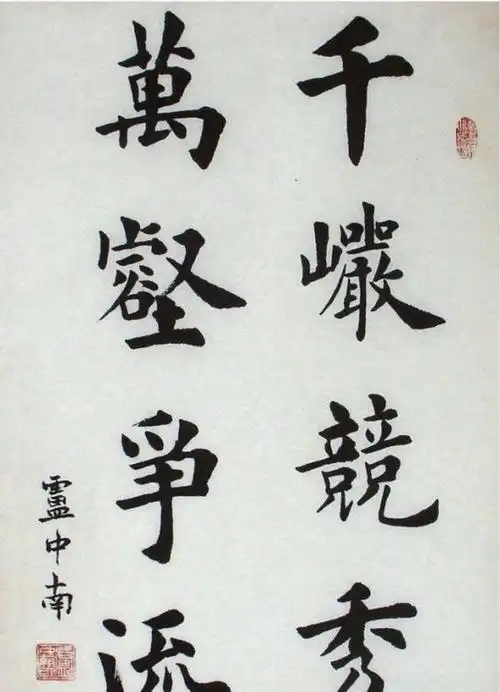 千巖競秀
萬壑爭流
盧中南